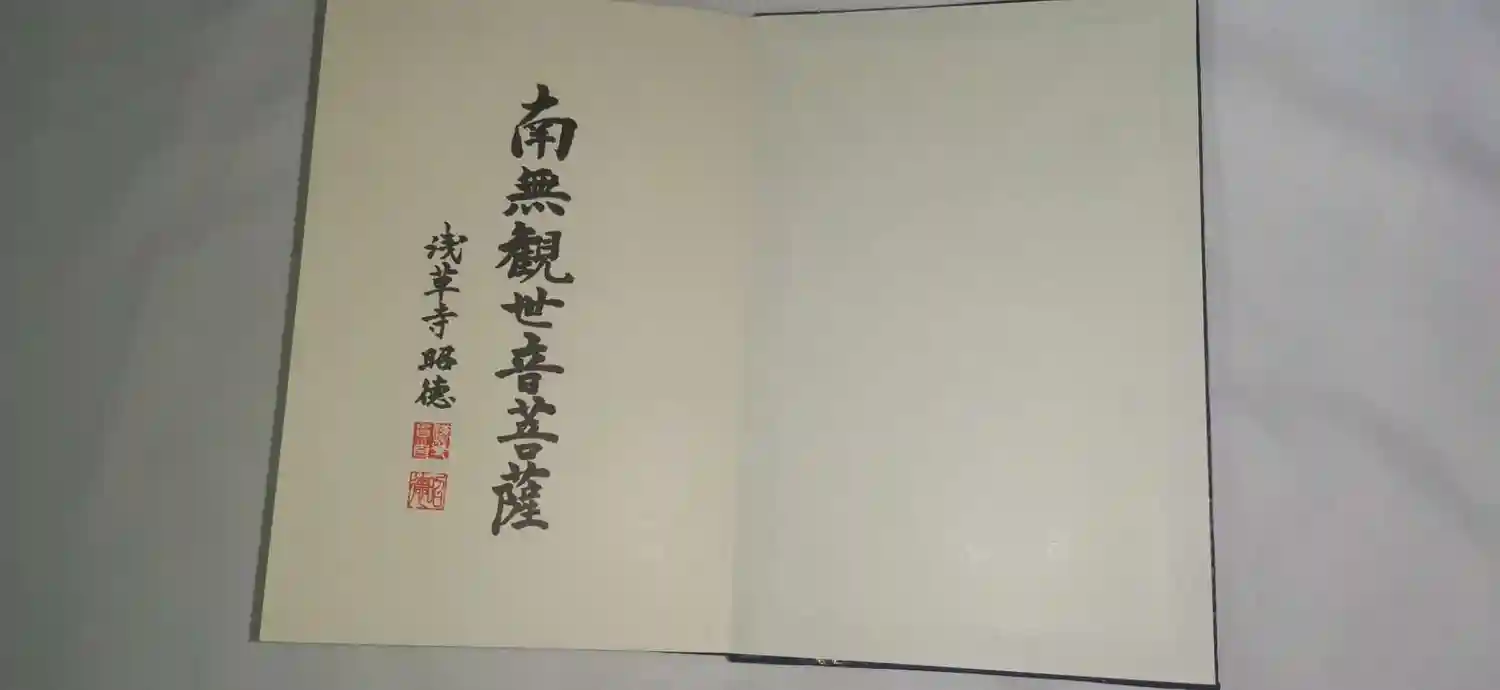 南無観世音菩薩
浅草寺昭徳